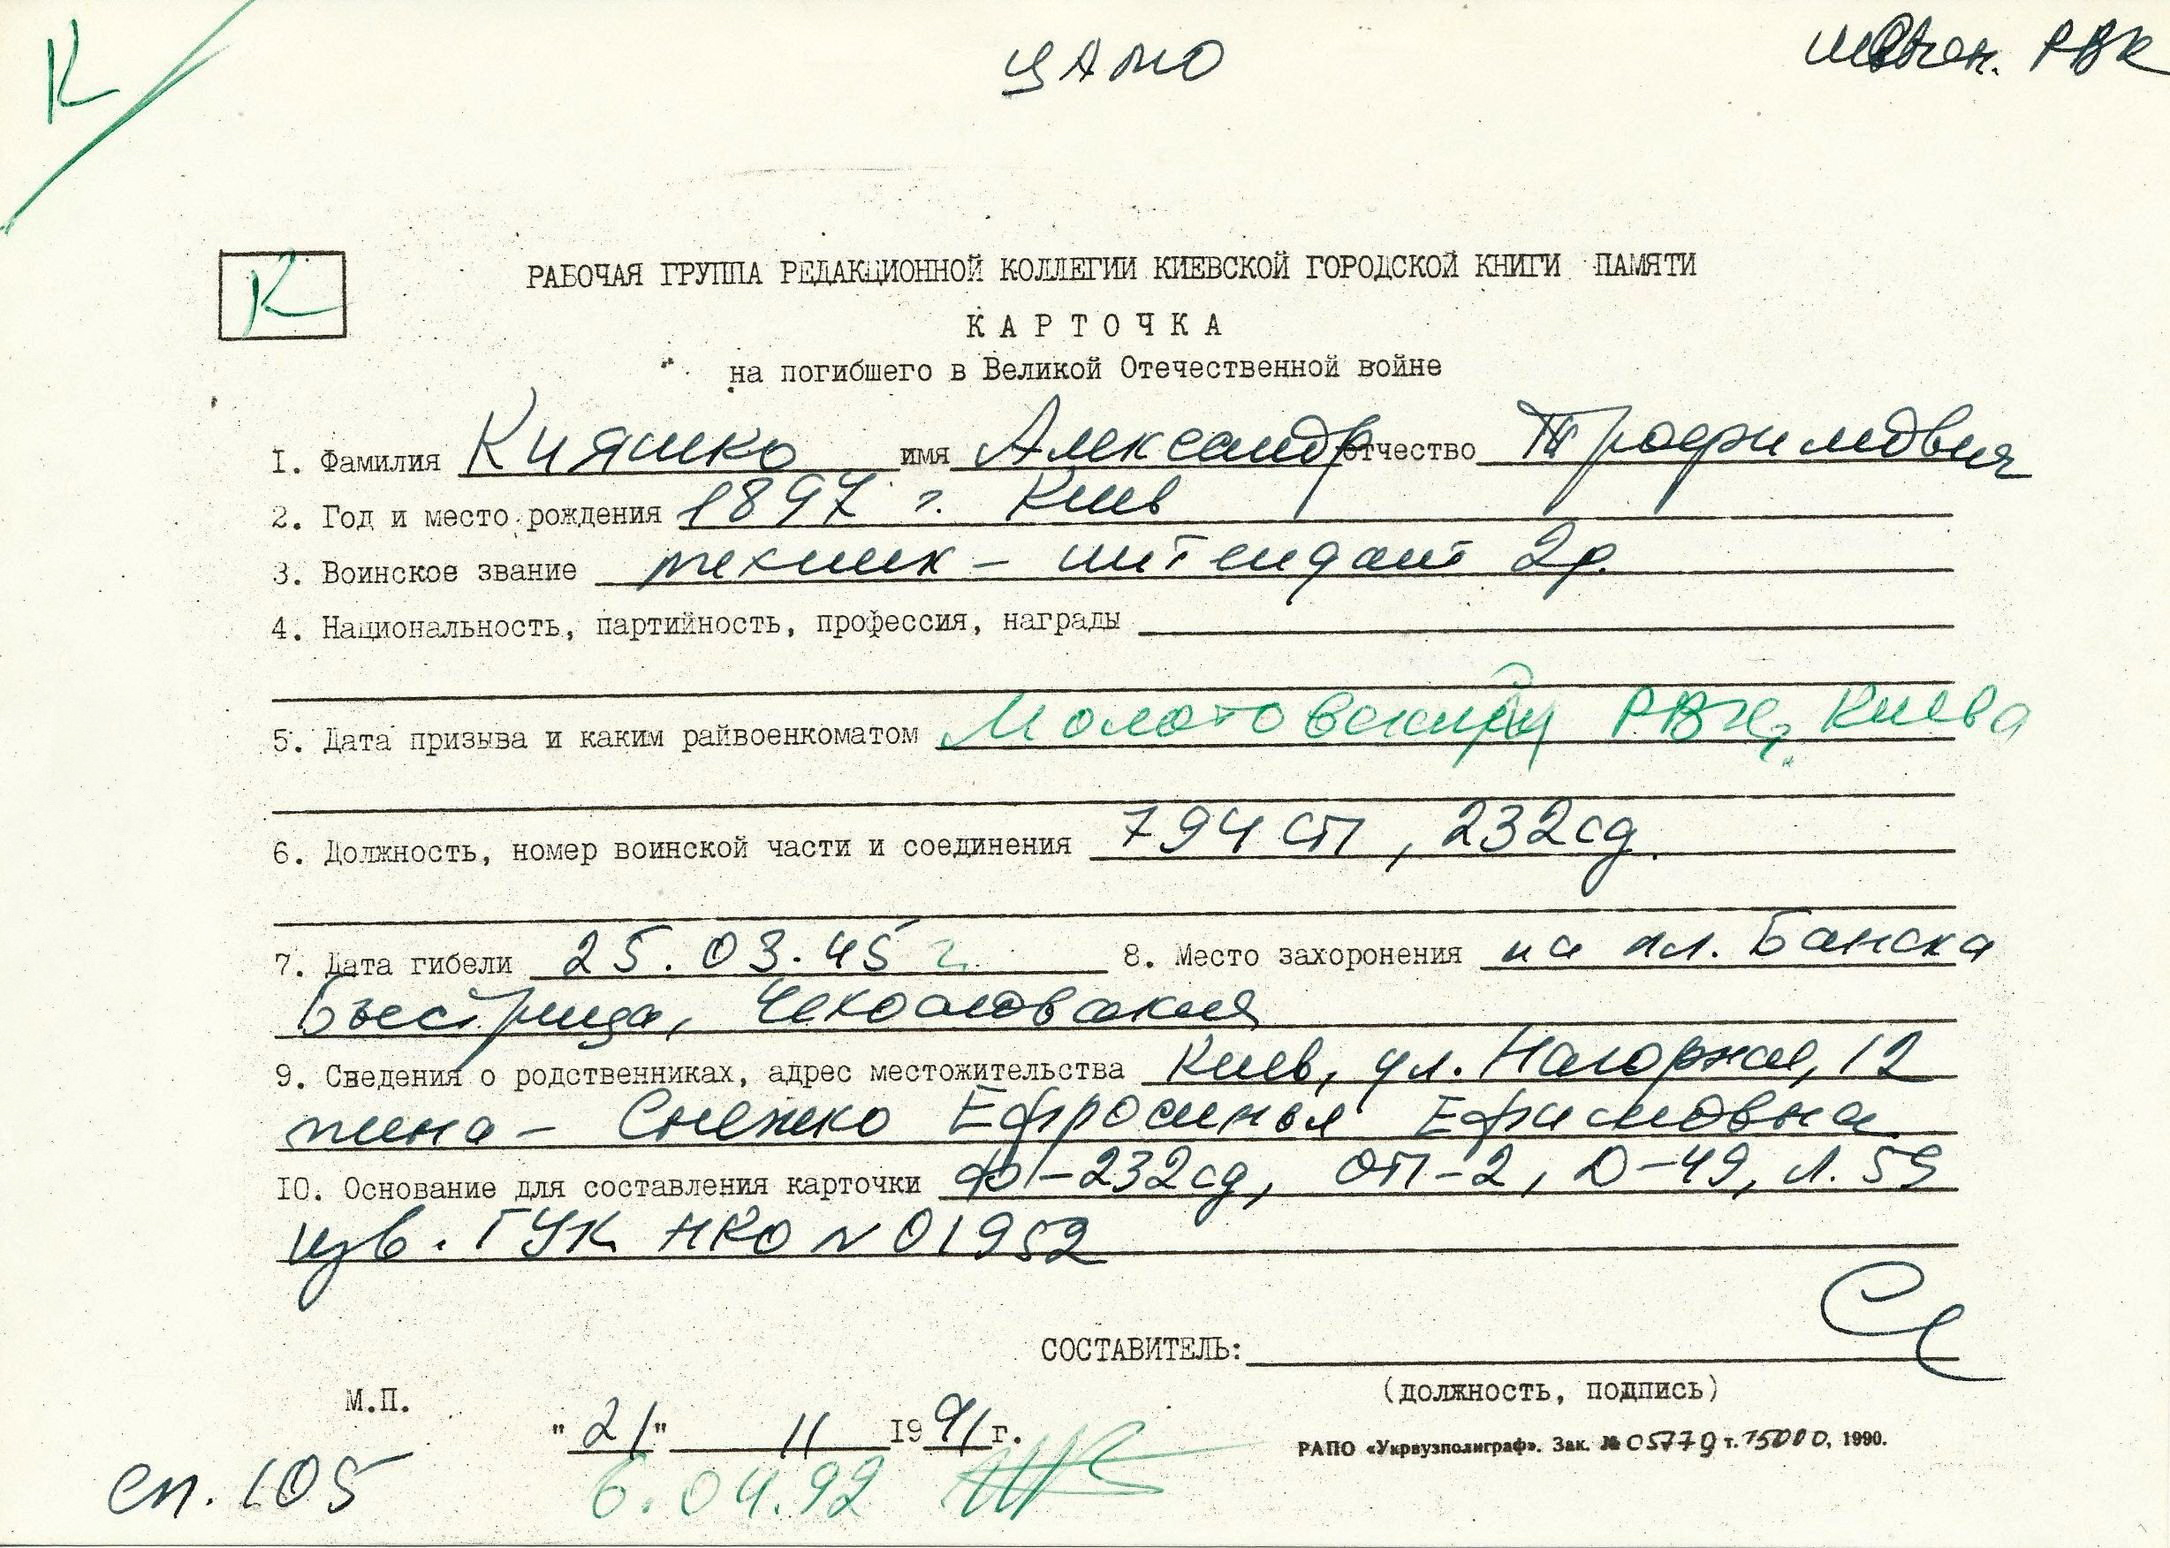 К
ЦАМО
РВК
К
РАБОЧАЯ ГРУППА РЕДАКЦИОННОЙ КОЛЛЕГИИ КИЕВСКОЙ ГОРОДСКОЙ КНИГИ ПАМЯТИ
КАРТОЧКА
на погибшего в Великой Отечественной войне
1. Фамилия Кияшко имя Александр отчество Трофимович
2. Год и место рождения 1897 г. Киев
3. Воинское звание техник - интендант 2р.
4. Национальность, партийность, профессия, награды
5. Дата призыва и каким райвоенкоматом Молотовский РВК, Киева
6. Должность, номер воинской части и соединения 794 СП, 232 сд.
7. Дата гибели 25.03.45 г. 8. Место захоронения на пл. Банска
Быстрица, Чехословакия
9. Сведения о родственниках, адрес местожительства Киев, ул. Нагорная, 12
- Снежко Ефросинья Ефимовна
10. Основание для составления карточки ф-232сд, оп-2, Д-49, Л. 59
изв. ГУК НКО N 01952
СОСТАВИТЕЛЬ:
(ДОЛЖНОСТЬ, ПОДПИСЬ)
М.П.
"21" 11 1991 г.
РАПО «Укрвузполиграф». Зак. № 05779 т. 15000, 1990.
сп. 105
6.04.92